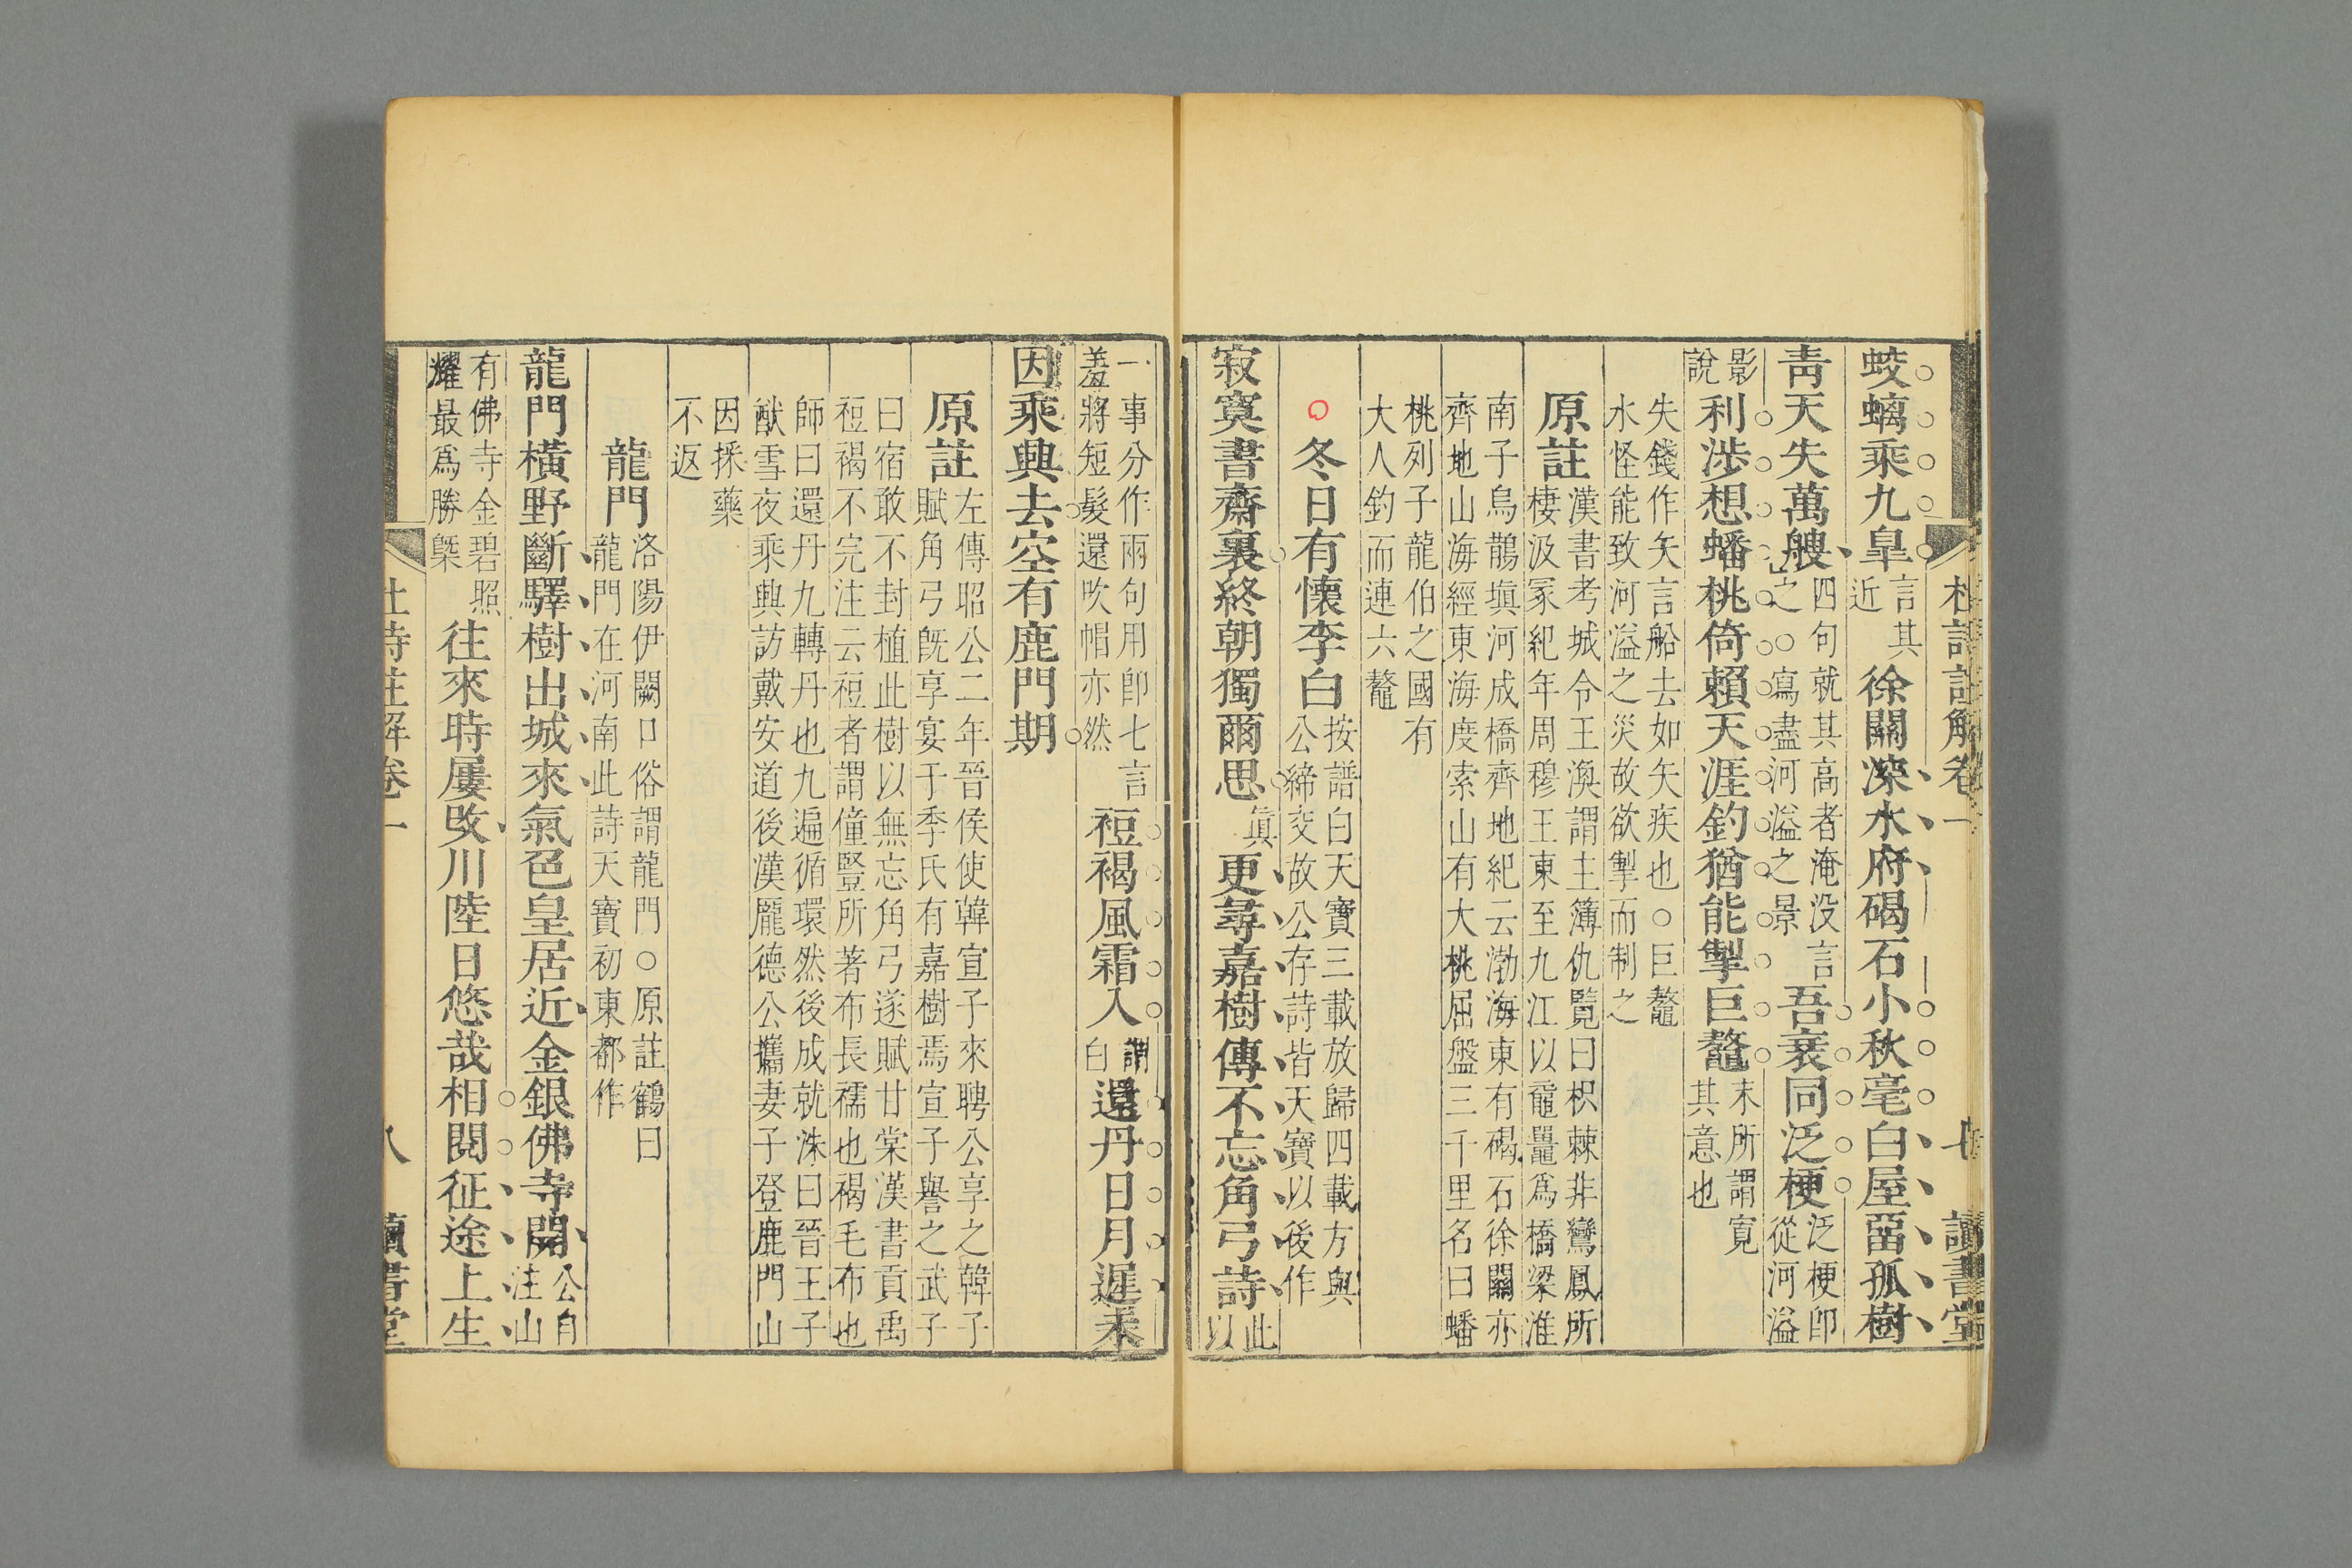 蛟螭乘九皐言其近徐關深水府碣石小秋毫白屋畱孤樹
青天失萬艘四句就其高者淹没言之○寫盡河溢之景吾衰同泛梗泛梗卽從河溢
影說利涉想蟠桃倚賴天涯釣猶能掣巨鼇末所謂寛其意也
失錢作矢言船去如矢疾也○巨鼇
水怪能致河溢之災故欲掣而制之
原註漢書考城令王渙謂主簿仇覽曰枳棘非鸞鳳所
棲汲冢紀年周穆王東至九江以黿鼉爲橋梁淮
南子烏鵲塡河成橋齊地紀云渤海東有碣石徐關亦
齊地山海經東海度索山有大桃屈盤三千里名曰蟠
桃列子龍伯之國有
大人釣而連六鼇
冬日有懷李白按譜白天寶三載放歸四載方與
公締交故公存詩皆天寶以後作
寂寞書齋裏終朝獨爾思眞更尋嘉樹傳不忘角弓詩此以
一事分作兩句用卽七言
羞將短髮還吹帽亦然裋褐風霜入謂白還丹日月遲未
因乘興去空有鹿門期
原註左傳昭公二年晉侯使韓宣子來聘公享之韓子
賦角弓旣享宴于季氏有嘉樹焉宣子譽之武子
曰宿敢不封植此樹以無忘角弓遂賦甘棠漢書貢禹
裋褐不完注云裋者謂僮豎所著布長襦也褐毛布也
師曰還丹九轉丹也九遍循環然後成就洙曰晉王子
猷雪夜乘興訪戴安道後漢龐德公攜妻子登鹿門山
因採藥
不返
龍門洛陽伊闕口俗謂龍門○原註鶴曰
龍門在河南此詩天寶初東都作
龍門橫野斷驛樹出城來氣色皇居近金銀佛寺開公自注山
有佛寺金碧照
耀最爲勝槩往來時屢改川陸日悠哉相閱征途上生
杜詩註解卷一
七
讀書堂
杜詩註解卷一
八
讀書堂